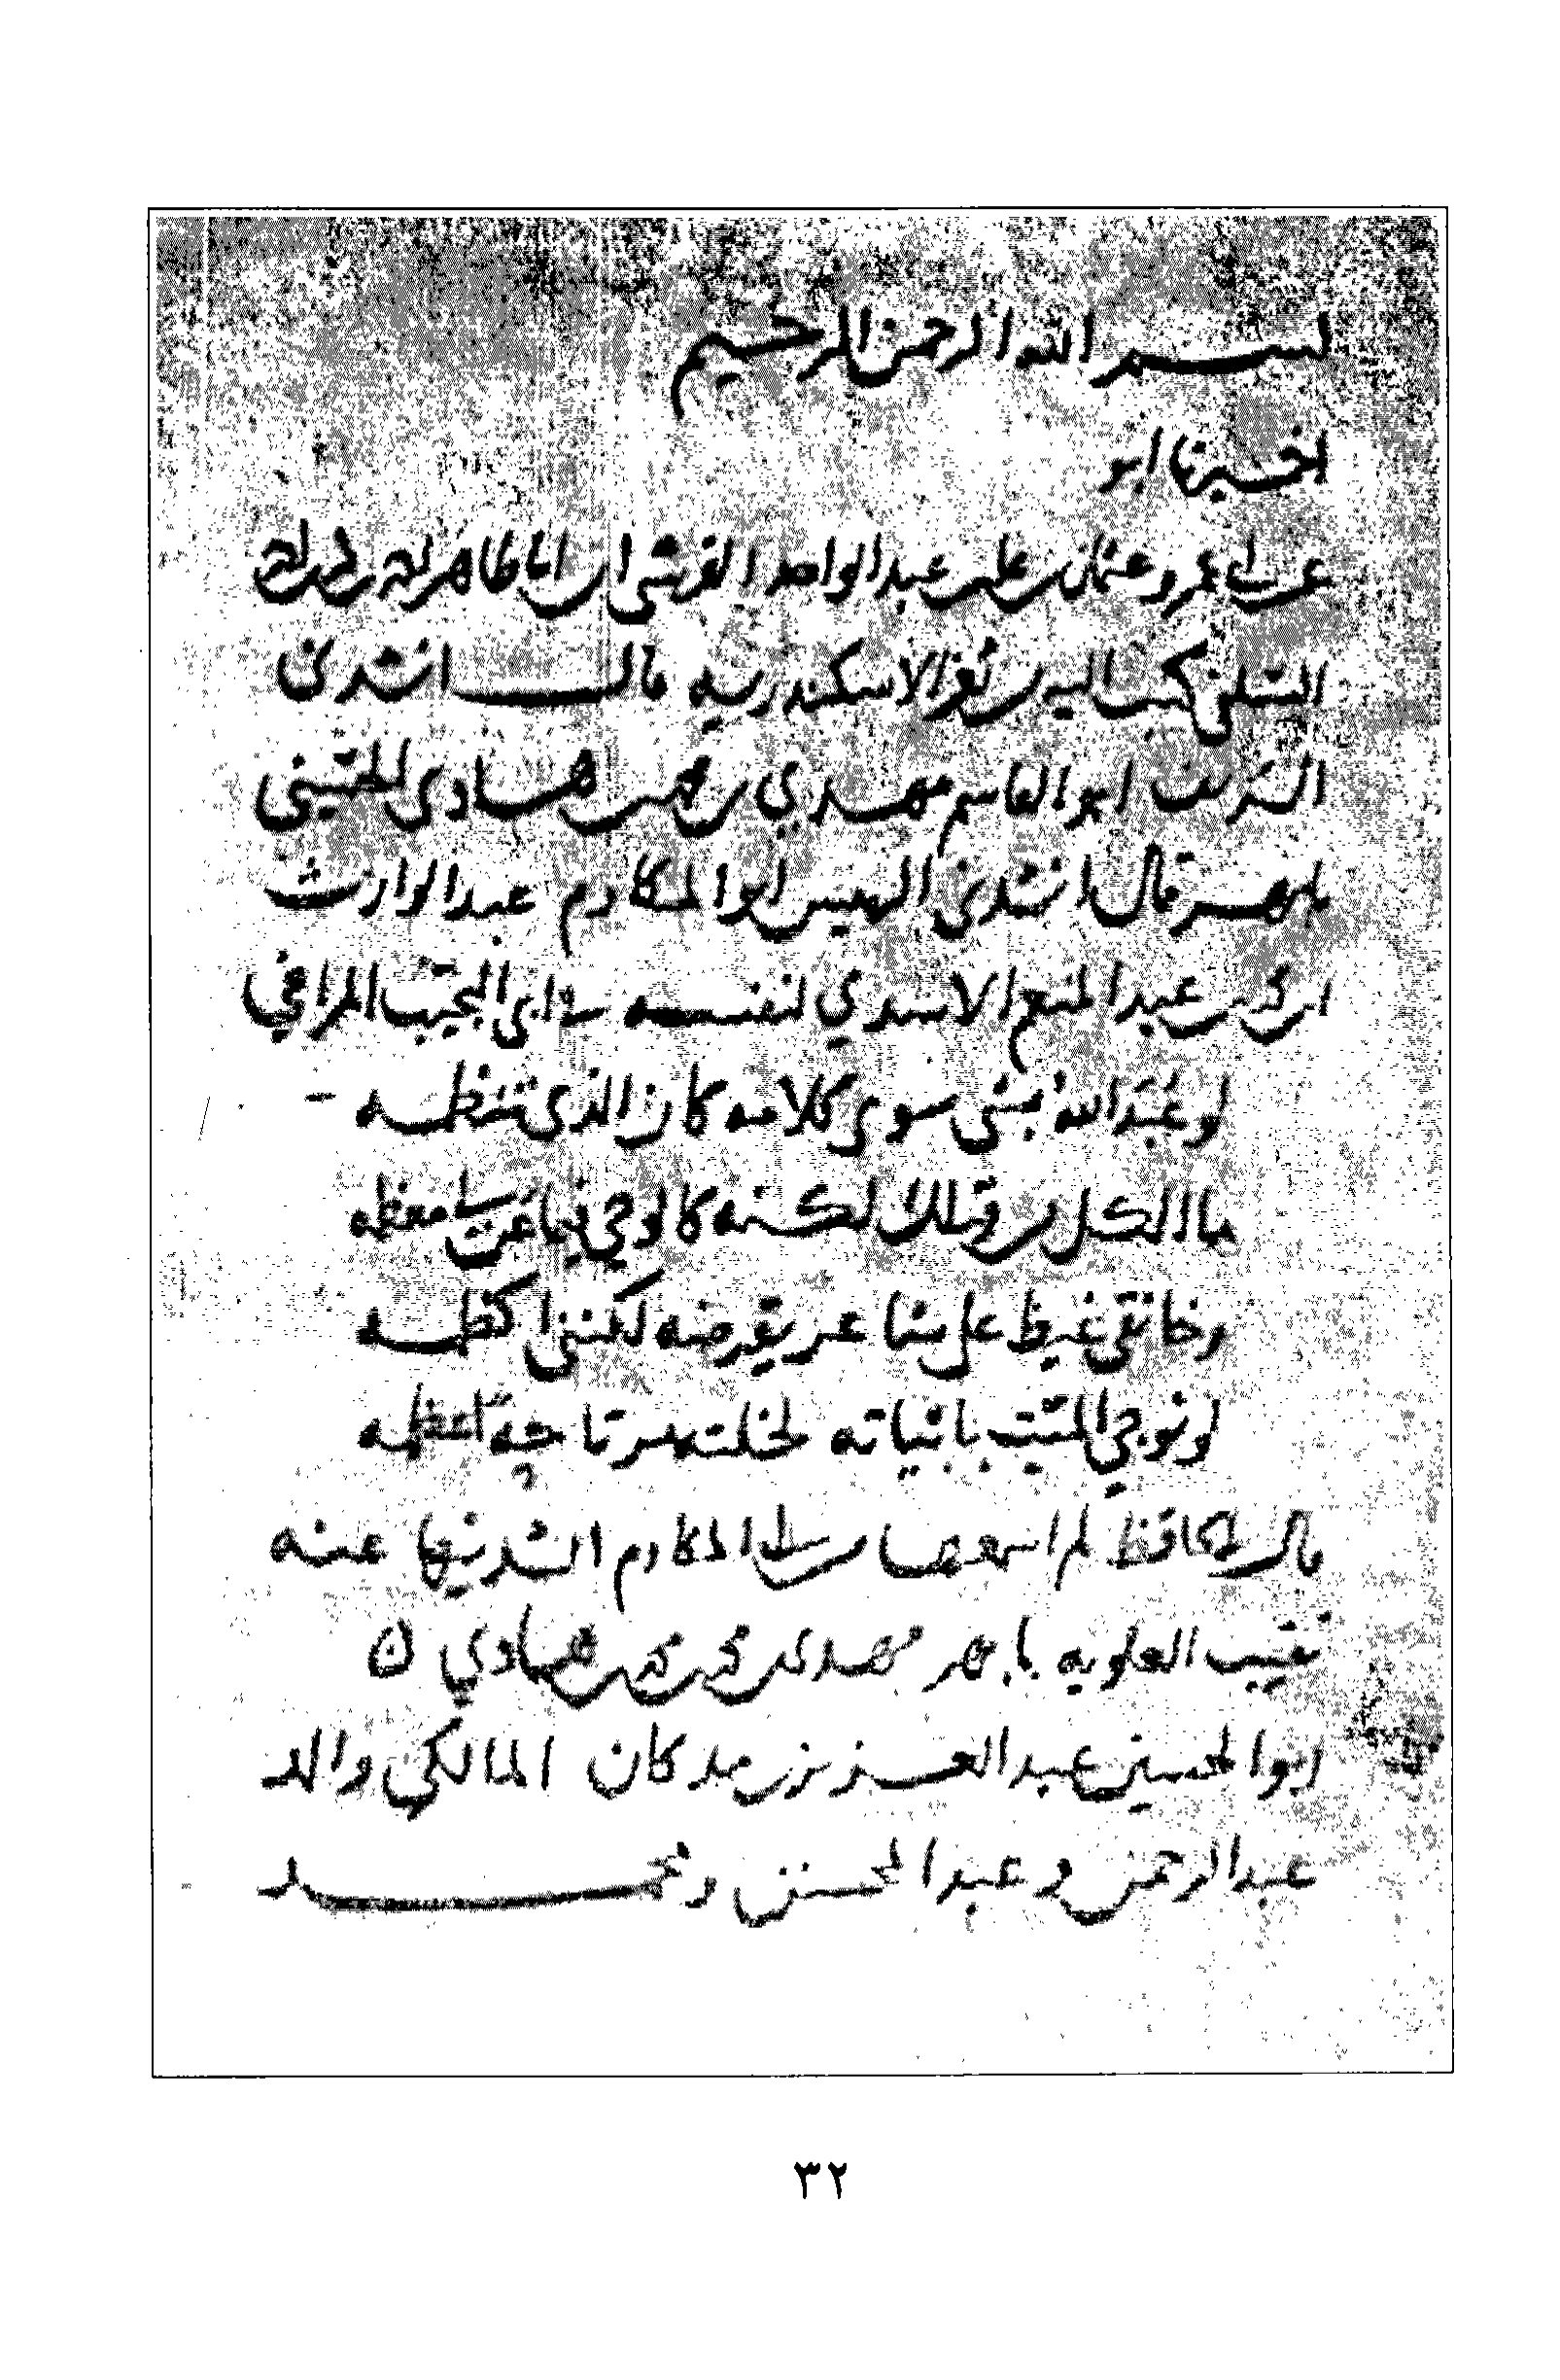 بسم الله الرحمن الرحيم
اخبرنا ابو
عمرو عثمان بن علي بن عبد الواحد القرشي ان اباطاهر احمد بن محمد
السلفي كتب اليه من ثغر الاسكندريه قال انشدني
الشريف ابو القاسم مهدي بن محمد بن هادي الحسيني
بابهر قال انشدني الرييس ابو المكارم عبد الوارث
ابن محمد بن عبد المنعم الاسدي لنفسه في ابي النجيب المراغي
لو عبد الله بشي سوى كلامه كان الذي تنظمه
ما الكل من قيلا لكنه كالوحي فيما عن معظمه
وخانقي غيظ على شاعر يقرضه لكنني اكظمه
لو نوجي الميت بابياته لخلته من تاحيه اعظمه
قال الحافظ لم اسمعها من ابي المكارم انشدنيها عنه
نقيب العلويه بابهر مهدي بن محمد بن محمد بن هادي ن
ابو الحسين عبد العزيز بن مدكان المالكي والد
عبد الرحمن وعبد المحسن ومحمد
٣٢